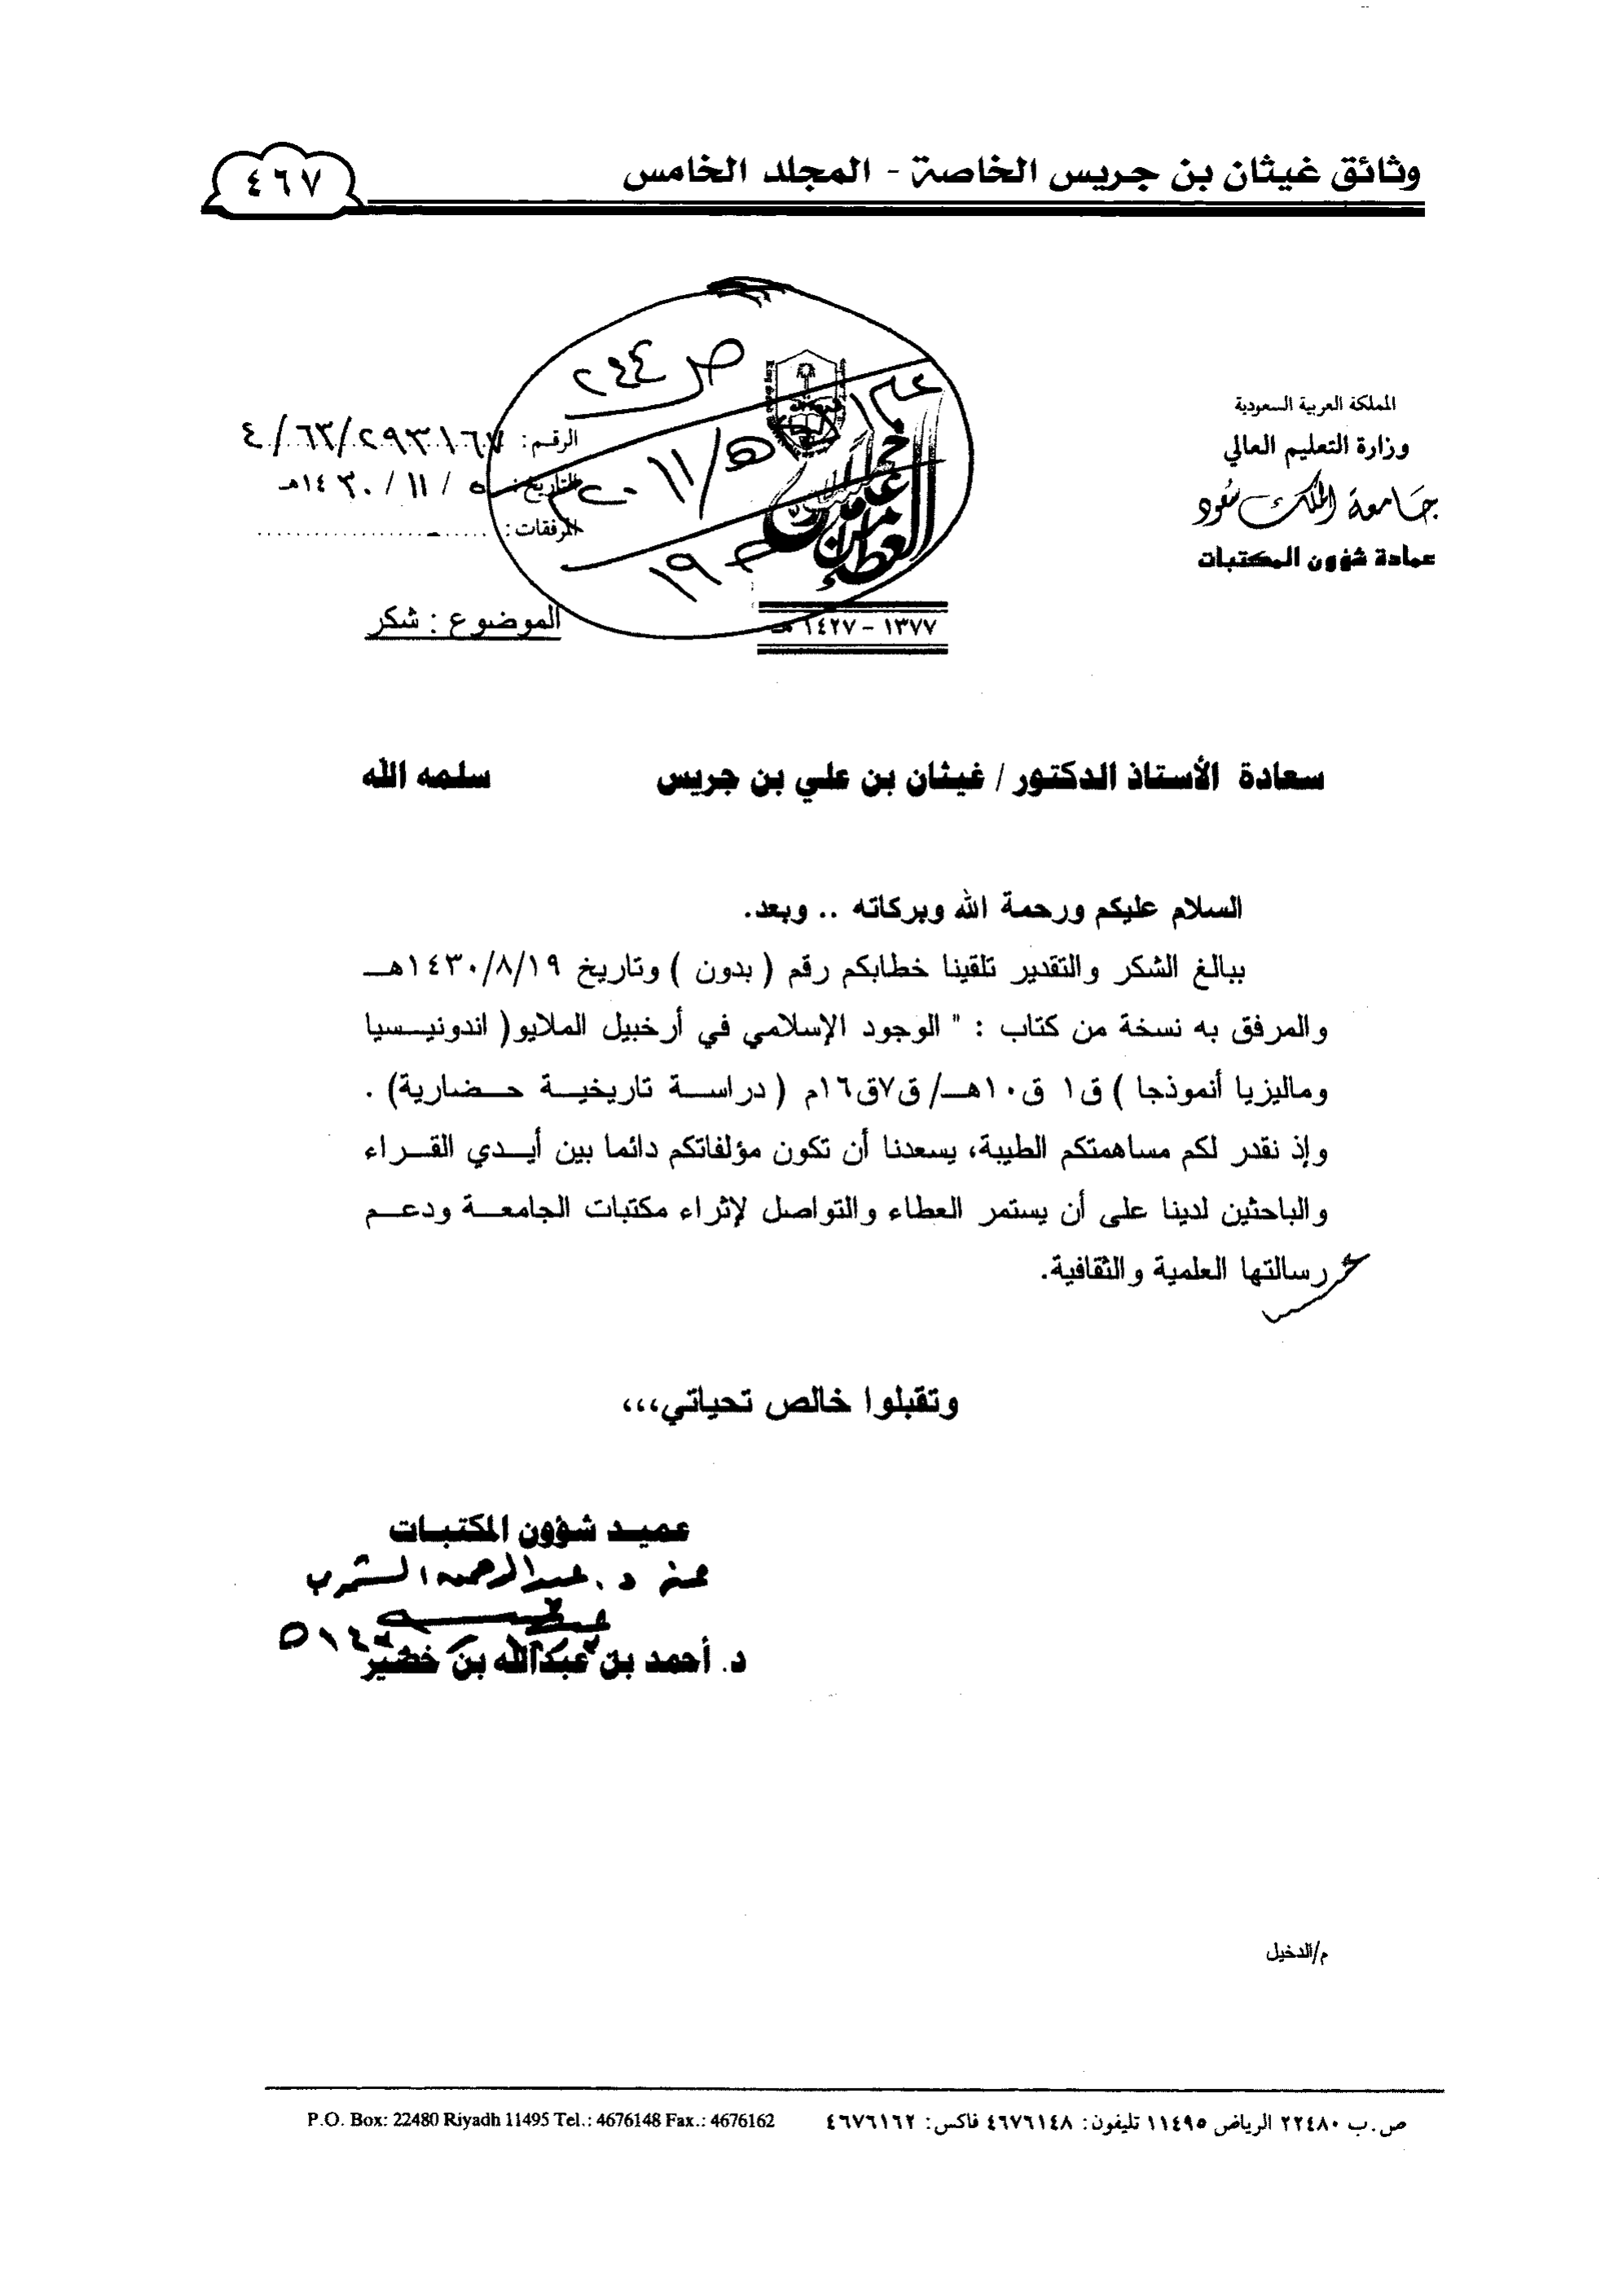 وثائق غيثان بن جريس الخاصة - المجلد الخامس
٤٦٧
المملكة العربية السعودية
وزارة التعليم العالي
جامعة الملك سعود
عمادة شؤون المكتبات
ص ٢٤٤
خمسون عاما من العطاء
١٣٧٧ - ١٤٢٧ هـ
الرقم: ٤/٦٢/٢٩٣١٦٧
التاريخ: ٥ / ١١ / ١٤٣٠هـ
المرفقات: -
الموضوع : شكر
سعادة الأستاذ الدكتور / غيثان بن علي بن جريس سلمه الله
السلام عليكم ورحمة الله وبركاته .. وبعد.
ببالغ الشكر والتقدير تلقينا خطابكم رقم ( بدون ) وتاريخ ١٤٣٠/٨/١٩هـ
والمرفق به نسخة من كتاب : " الوجود الإسلامي في أرخبيل الملايو( اندونيسيا
وماليزيا أنموذجا ) ق١ ق١٠هـ/ ق٧ق١٦م ( دراسة تاريخية حضارية) .
وإذ نقدر لكم مساهمتكم الطيبة، يسعدنا أن تكون مؤلفاتكم دائما بين أيدي القراء
والباحثين لدينا على أن يستمر العطاء والتواصل لإثراء مكتبات الجامعة ودعم
رسالتها العلمية والثقافية.
وتقبلوا خالص تحياتي،،،
عميد شؤون المكتبات
د. أحمد بن عبدالله بن خضير
م/الدخيل
ص.ب ٢٢٤٨٠ الرياض ١١٤٩٥ تليفون: ٤٦٧٦١٤٨ فاكس: ٤٦٧٦١٦٢
P.O. Box: 22480 Riyadh 11495 Tel.: 4676148 Fax.: 4676162